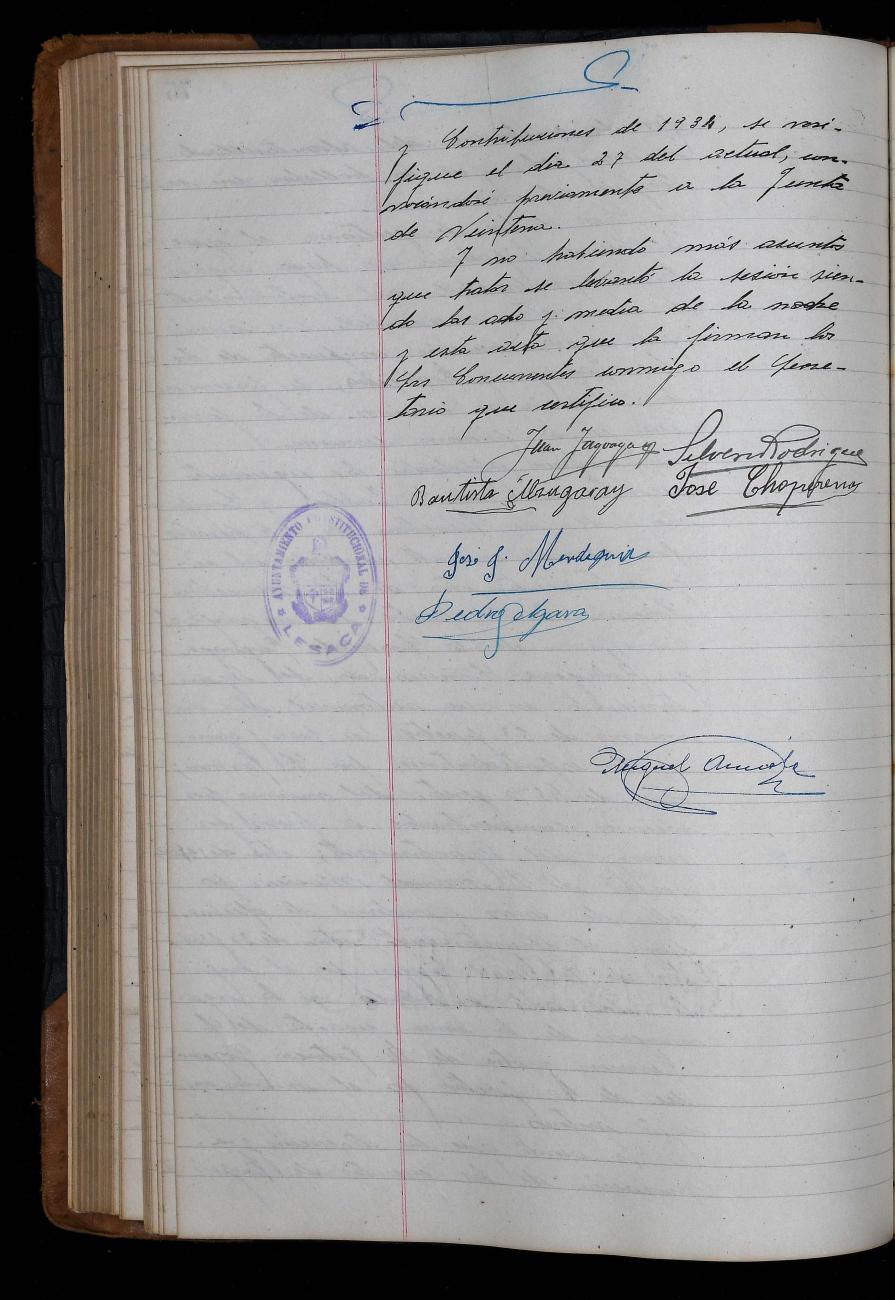 y Contribuciones de 1934, se veri-
fique el dia 27 del actual, con-
vocandose previamente a la Junta
de Veintena.
Y no habiendo más asuntos
que tratar se levantó la sesión sien-
do las ocho y media de la noche
y esta acta que la firman los
Srs Concurrentes conmigo el Secre-
tario que certifico.
Juan
Silverio Rodriguez
Bautista
José
José J. Mendeguia
Pedro
AYUNTAMIENTO CONSTITUCIONAL DE
LESACA
Miguel